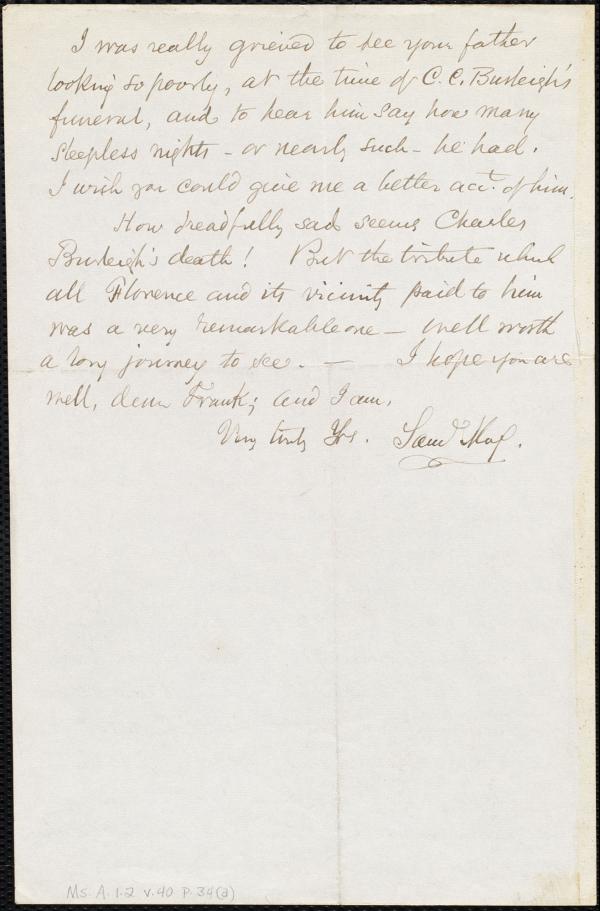 I was really grieved to see your father
looking so poorly, at the time of C. C. Burleigh's
funeral, and to hear him say how many
sleepless nights - or nearly such - he had.
I wish you could give me a better acc.t of him.
How dreadfully sad seems Charles
Burleigh's death! But the tribute which
all Florence and its vicinity paid to him
was a very remarkable one — well worth
a long journey to see. — I hope you are
well, dear Frank; and I am,
Very truly Yrs. Saml May.
Ms. A. 1. 2 v. 40 p. 34(a)